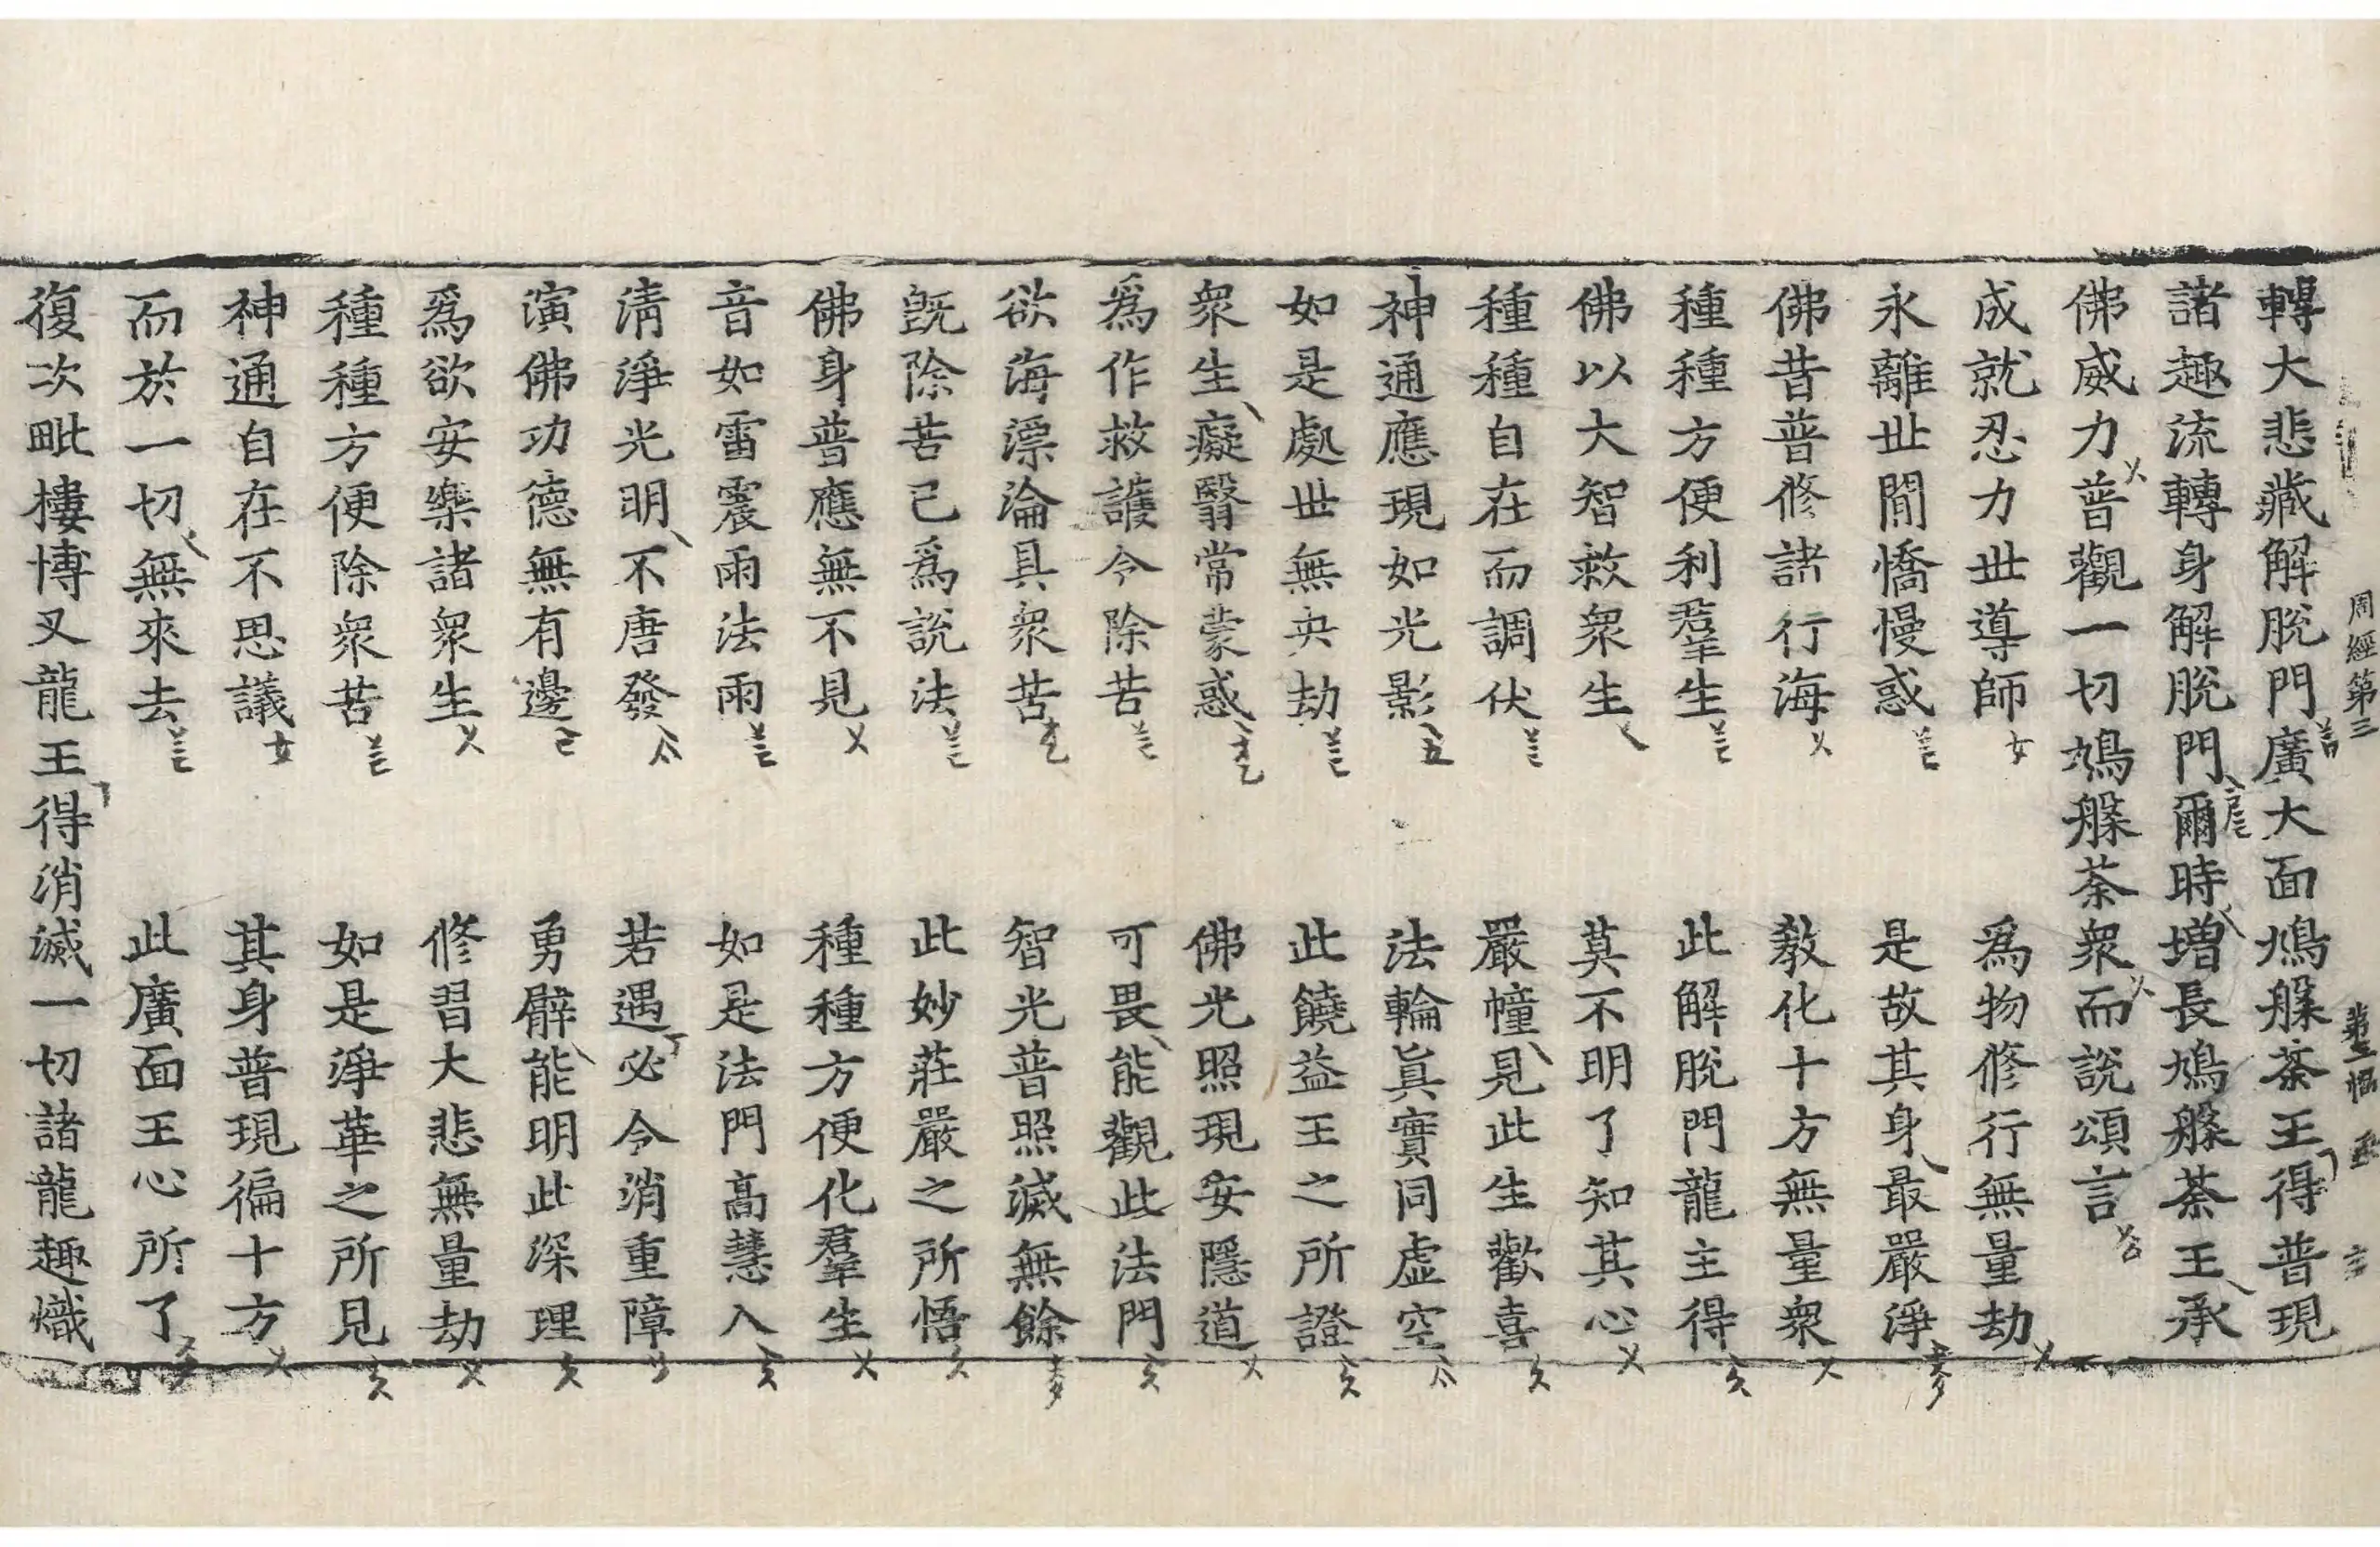 周經第三
轉大悲藏解脫門廣大面鳩槃荼王得普現
諸趣流轉身解脫門爾時增長鳩槃荼王承
佛威力普觀一切鳩槃荼衆而說頌言
成就忍力世導師 爲物修行無量劫
永離世間憍慢惑 是故其身最嚴淨
佛昔普修諸行海 教化十方無量衆
種種方便利羣生 此解脫門龍主得
佛以大智救衆生 莫不明了知其心
種種自在而調伏 嚴幢見此生歡喜
神通應現如光影 法輪眞實同虛空
如是處世無央劫 此饒益王之所證
衆生癡翳常蒙惑 佛光照現安隱道
爲作救護令除苦 可畏能觀此法門
欲海漂淪具衆苦 智光普照滅無餘
旣除苦已爲說法 此妙莊嚴之所悟
佛身普應無不見 種種方便化羣生
音如雷震雨法雨 如是法門高慧入
淸淨光明不唐發 若遇必令消重障
演佛功德無有邊 勇臂能明此深理
爲欲安樂諸衆生 修習大悲無量劫
種種方便除衆苦 如是淨華之所見
神通自在不思議 其身普現徧十方
而於一切無來去 此廣面王心所了
復次毗樓博叉龍王得消滅一切諸龍趣熾